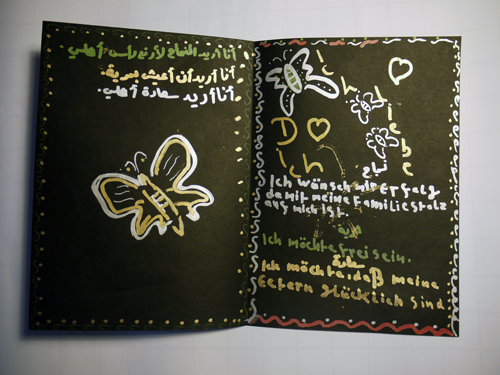 أنا أريد النجاح لأرفع رأس أهلي.
أنا أريد أن أعيش بحرية.
أنا أريد سعادة أهلي.
Ich
liebe
Dich
نجاح
Ich wünsch mir Erfolg
damit meine Familie stolz
auf mich ist.
حرية
Ich möchte frei sein.
سعادة
Ich möchte, daß meine
Eltern glücklich sind